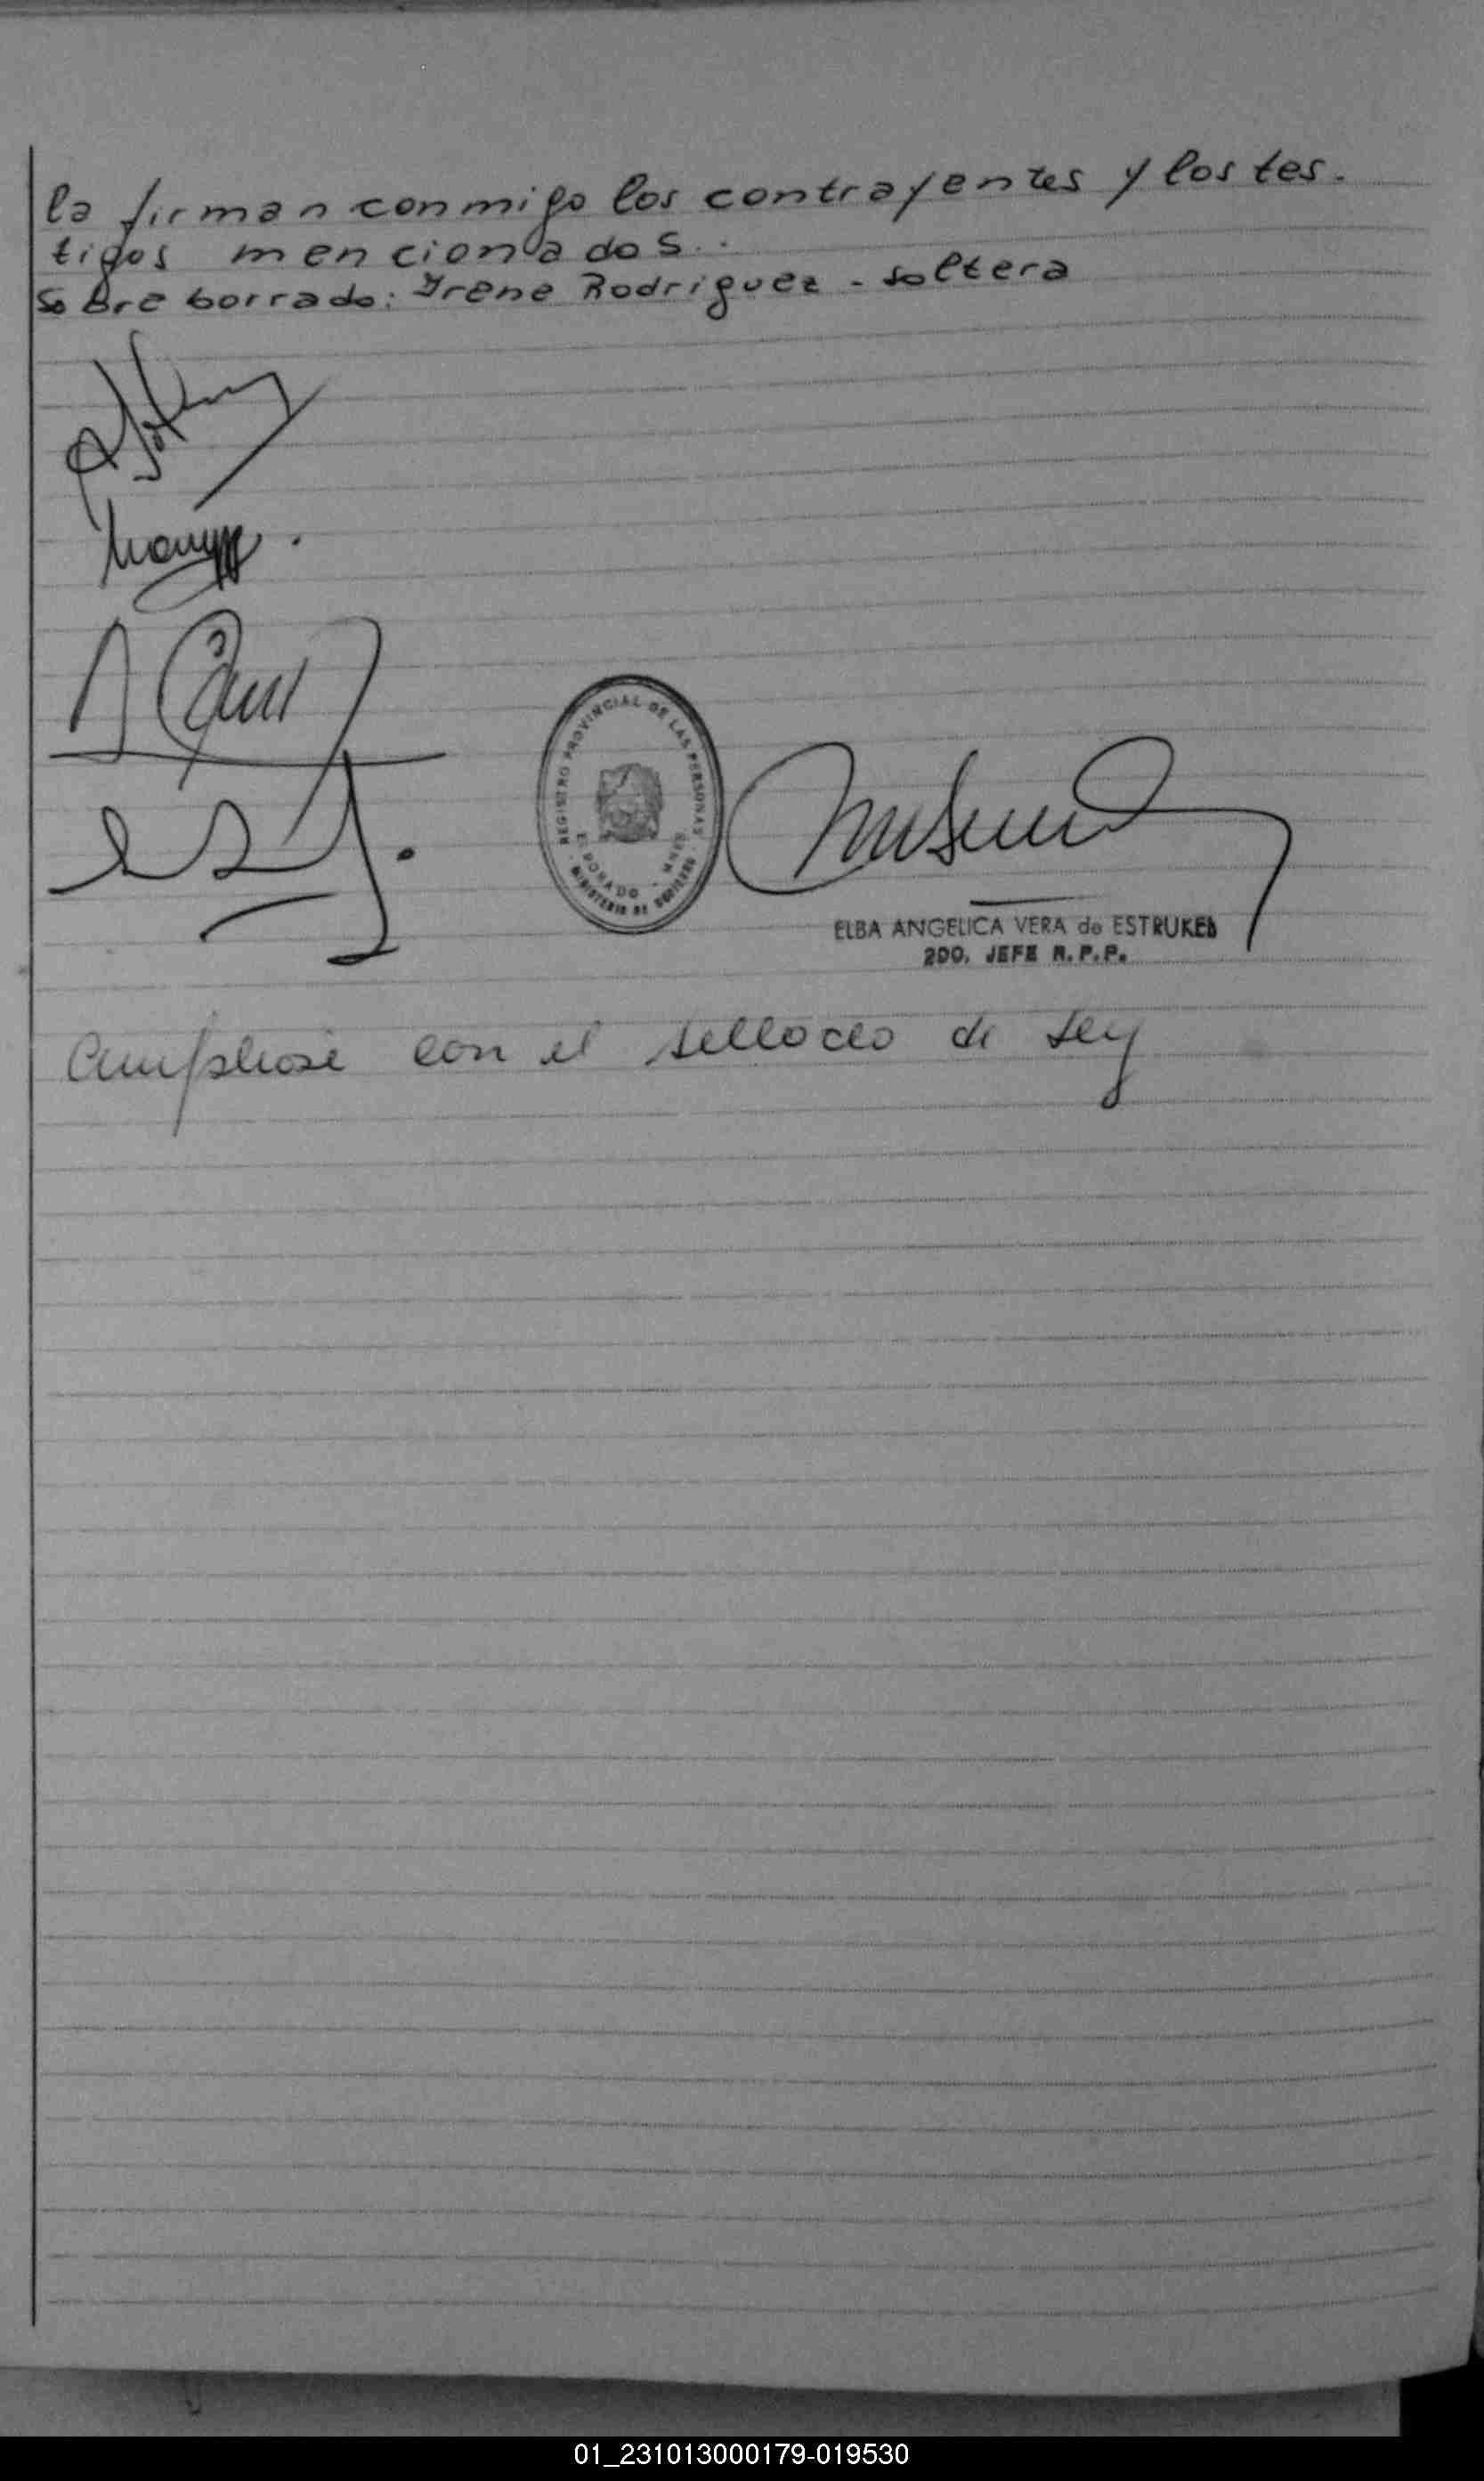 la firman conmigo los contrayentes y los tes-
tigos mencionados..
Sobre borrado: Irene Rodriguez - soltera
REGISTRO PROVINCIAL DE LAS PERSONAS
EL DORADO - MNES
MINISTERIO DE GOBIERNO
ELBA ANGELICA VERA de ESTRUKEL
2DO. JEFE R.P.P.
con el sellado de Ley
01_231013000179-019530